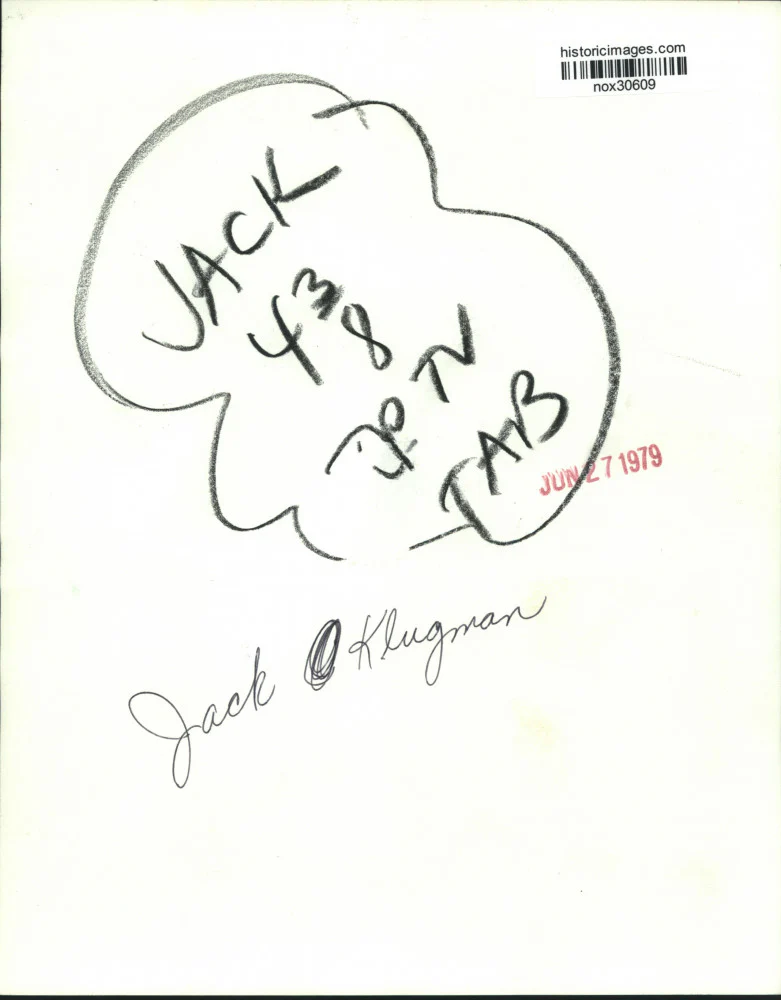 historicimages.com
nox30609
JACK
438
TV
TAB
JUN 27 1979
Jack Klugman